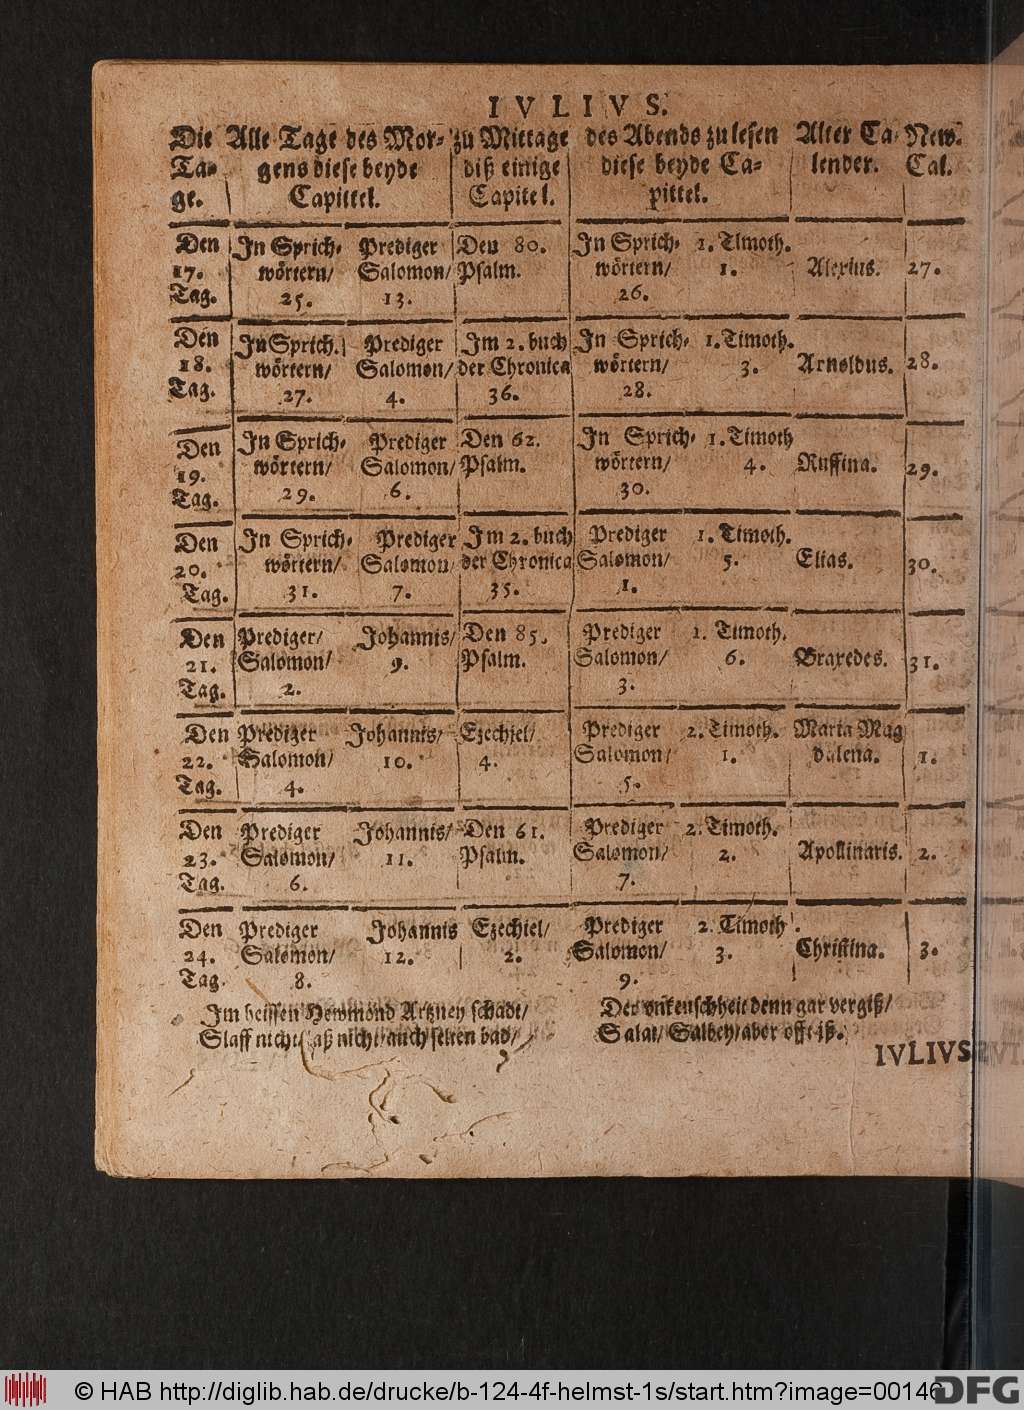 IVLIVS.
Die Alle Tage des Mor- zu Mittage des Abends zu lesen Alter Ca- New.
Ta- gens diese beyde diß einige diese beyde Ca- lender. Cal.
ge. Capittel. Capitel. pittel.
Den In Sprich- Prediger Den 80. In Sprich- 1. Timoth.
17. wörtern/ Salomon/ Psalm. wörtern/ 1. Alexius. 27.
Tag. 25. 13. 26.
Den In Sprich. Prediger Im 2. buch In Sprich- 1. Timoth.
18. wörtern/ Salomon/ der Chronica wörtern/ 3. Arnoldus. 28.
Tag. 27. 4. 36. 28.
Den In Sprich- Prediger Den 62. In Sprich- 1. Timoth
19. wörtern/ Salomon/ Psalm. wörtern/ 4. Ruffina. 29.
Tag. 29. 6. 30.
Den In Sprich- Prediger Im 2. buch Prediger 1. Timoth.
20. wörtern/ Salomon/ der Chronica Salomon/ 5. Elias. 30.
Tag. 31. 7. 35. 1.
Den Prediger/ Johannis/ Den 85. Prediger 1. Timoth.
21. Salomon/ 9. Psalm. Salomon/ 6. Braxedes. 31.
Tag. 2. 3.
Den Prediger Johannis/ Ezechiel/ Prediger 2. Timoth. Maria Mag
22. Salomon/ 10. 4. Salomon/ 1. dalena. 1.
Tag. 4. 5.
Den Prediger Johannis/ Den 61. Prediger 2. Timoth.
23. Salomon/ 11. Psalm. Salomon/ 2. Apollinaris. 2.
Tag. 6. 7.
Den Prediger Johannis Ezechiel/ Prediger 2. Timoth.
24. Salomon/ 12. 2. Salomon/ 3. Christina. 3.
Tag. 8. 9.
Im heissen Hewmond Artzney schadt/
Slaff nicht/ laß nicht/ auch selten bad/
Der vnkeuschheit denn gar vergiß/
Salat/ Salbey/ aber offt iß.
IVLIVS
© HAB http://diglib.hab.de/drucke/b-124-4f-helmst-1s/start.htm?image=00146
DFG